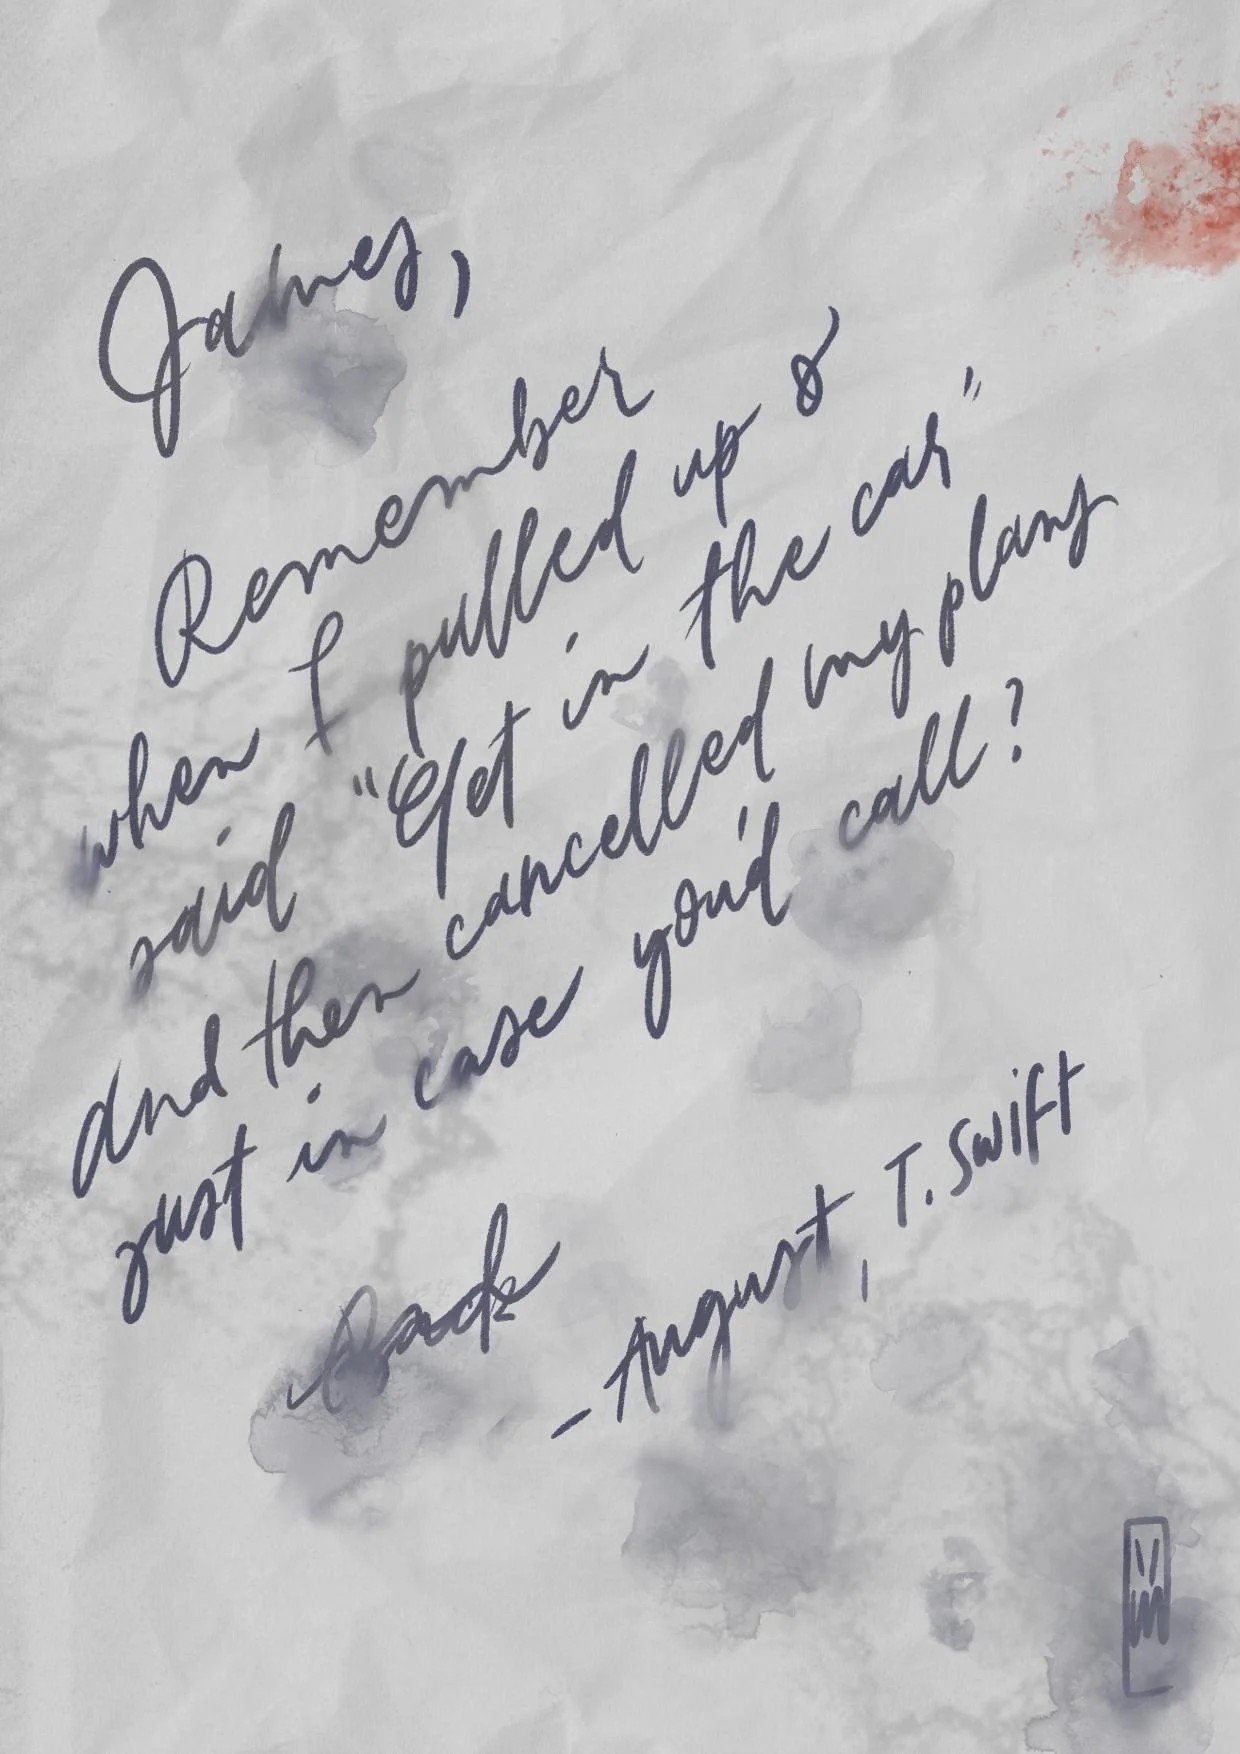 James,
Remember
when I pulled up &
said "Get in the car"
And then cancelled my plans
just in case you'd call?
Back
- August, T. Swift